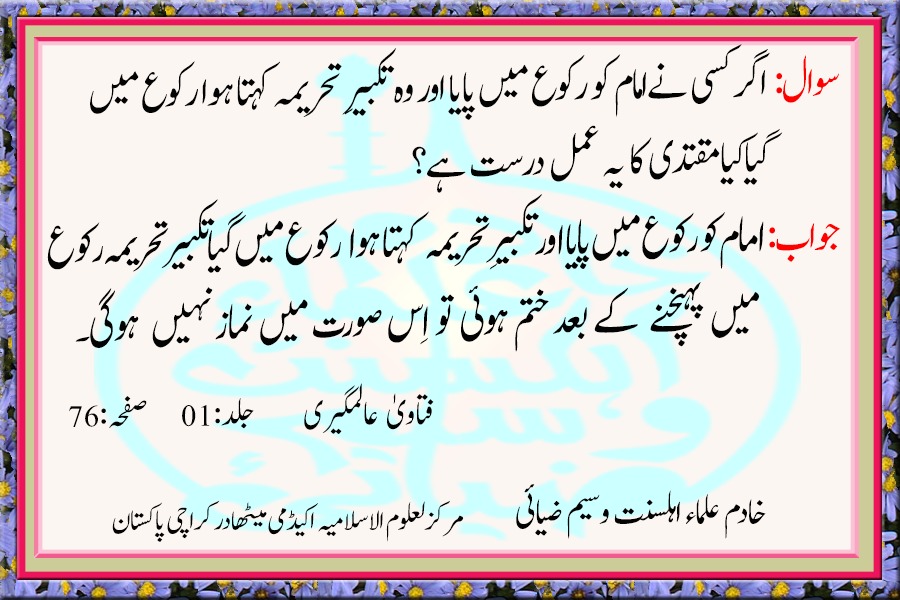 سوال: اگر کسی نے امام کو رکوع میں پایا اور وہ تکبیرِ تحریمہ کہتا ہوا رکوع میں
گیا کیا مقتدی کا یہ عمل درست ہے؟
جواب: امام کو رکوع میں پایا اور تکبیرِ تحریمہ کہتا ہوا رکوع میں گیا تکبیرِ تحریمہ رکوع
میں پہنچنے کے بعد ختم ہوئی تو اِس صورت میں نماز نہیں ہوگی۔
فتاویٰ عالمگیری جلد:01 صفحہ:76
خادم علماء اہلسنت وسیم ضیائی مرکز لعلوم الاسلامیہ اکیڈمی میٹھادر کراچی پاکستان